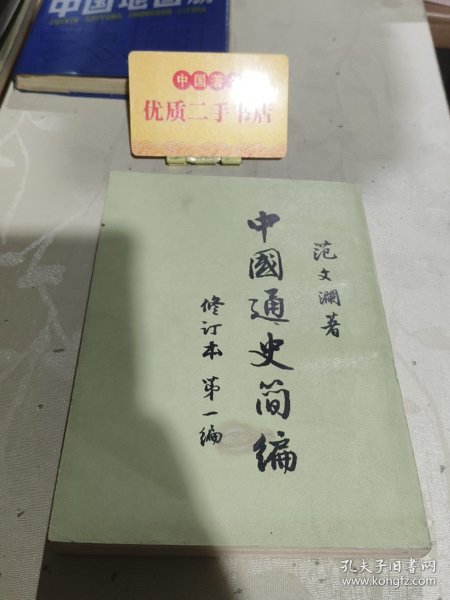 中国地图册
中国著
优质二手书店
范文瀾著
中國通史简编
修订本 第一编
孔夫子旧书网
www.kongfz.com